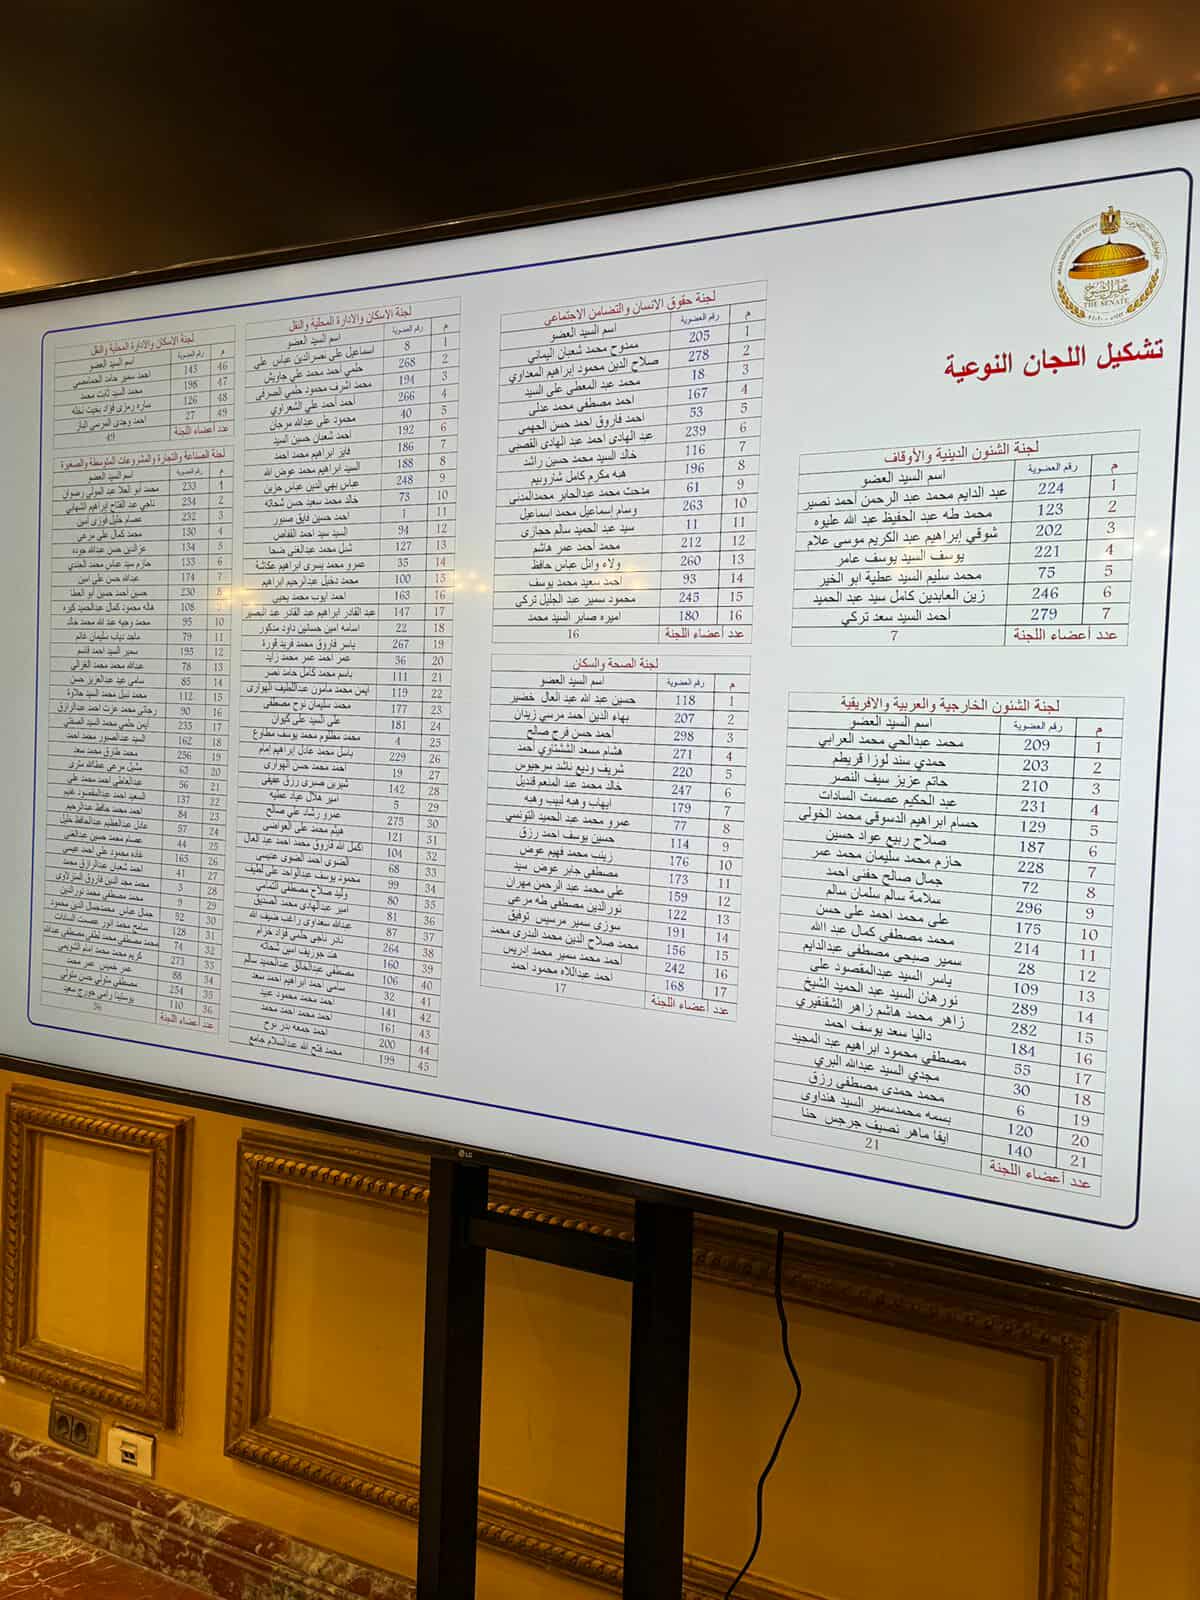 THE SENATE
تشكيل اللجان النوعية
لجنة الشئون الدينية والأوقاف
م رقم العضوية اسم السيد العضو
1 224 عبد الدايم محمد عبد الرحمن أحمد نصير
2 123 محمد طه عبد الحفيظ عبد الله عليوه
3 202 شوقي إبراهيم عبد الكريم موسى علام
4 221 يوسف السيد يوسف عامر
5 75 محمد سليم السيد عطية ابو الخير
6 246 زين العابدين كامل سيد عبد الحميد
7 279 أحمد السيد سعد تركي
عدد أعضاء اللجنة 7
لجنة الشئون الخارجية والعربية والافريقية
م رقم العضوية اسم السيد العضو
1 209 محمد عبدالحي محمد العرابي
2 203 حمدي سند لوزا قريطم
3 210 حاتم عزيز سيف النصر
4 231 عبد الحكيم عصمت السادات
5 129 حسام ابراهيم الدسوقي محمد الخولي
6 187 صلاح ربيع عواد حسين
7 228 حازم محمد سليمان محمد عمر
8 72 جمال صالح حفني احمد
9 296 سلامة سالم سلمان سالم
10 175 على محمد احمد على حسن
11 214 محمد مصطفى كمال عبد الله
12 28 سمير صبحي مصطفى عبدالدايم
13 109 ياسر السيد عبدالمقصود على
14 289 نورهان السيد عبد الحميد الشيخ
15 282 زاهر محمد هاشم زاهر الشقنقيري
16 184 داليا سعد يوسف احمد
17 55 مصطفي محمود ابراهيم عبد المجيد
18 30 مجدي السيد عبدالله البري
19 6 محمد حمدى مصطفى رزق
20 120 بسمه محمدسمير السيد هنداوى
21 140 ايفا ماهر نصيف جرجس حنا
عدد أعضاء اللجنة 21
لجنة حقوق الانسان والتضامن الاجتماعي
م رقم العضوية اسم السيد العضو
1 205 ممدوح محمد شعبان اليماني
2 278 صلاح الدين محمود ابراهيم المعداوي
3 18 محمد عبد المعطى على السيد
4 167 احمد مصطفى محمد عدلى
5 53 احمد فاروق احمد حسن الجهمى
6 239 عبد الهادى احمد عبد الهادى القصبى
7 116 خالد السيد محمد حسين راشد
8 196 هبه مكرم كامل شاروبيم
9 61 مدحت محمد عبدالجابر محمدالمدنى
10 263 وسام إسماعيل محمد اسماعيل
11 11 سيد عبد الحميد سالم حجازى
12 212 محمد أحمد عمر هاشم
13 260 ولاء وائل عباس حافظ
14 93 احمد سعيد محمد يوسف
15 245 محمود سمير عبد الجليل تركى
16 180 اميره صابر السيد محمد
عدد أعضاء اللجنة 16
لجنة الصحة والسكان
م رقم العضوية اسم السيد العضو
1 118 حسين عبد الله عبد العال خضير
2 207 بهاء الدين أحمد مرسي زيدان
3 298 أحمد حسن فرج صالح
4 271 هشام مسعد الششتاوي أحمد
5 220 شريف وديع ناشد سرجيوس
6 247 خالد محمد عبد المنعم قنديل
7 179 ايهاب وهبه لبيب وهبه
8 77 عمرو محمد عبد الحميد التونسي
9 114 حسين يوسف احمد رزق
10 176 زينب محمد فهيم عوض
11 173 مصطفى جابر عوض سيد
12 159 على محمد عبد الرحمن مهران
13 122 نورالدين مصطفى طه مرعى
14 191 سوزى سمير مرسيس توفيق
15 156 محمد صلاح الدين محمد البدرى محمد
16 242 أحمد محمد سمير محمد إدريس
17 168 احمد عبداللاه محمود احمد
عدد أعضاء اللجنة 17
لجنة الاسكان والادارة المحلية والنقل
م رقم العضوية اسم السيد العضو
1 8 اسماعيل على نصرالدين عباس على
2 268 حلمي أحمد محمد علي جاويش
3 194 محمد اشرف محمود حلمى الصرفى
4 266 أحمد أحمد علي الشعراوي
5 40 محمود على عبدالله مرجان
6 192 احمد شعبان حسين السيد
7 186 فايز ابراهيم محمد احمد
8 188 السيد ابراهيم محمد عوض الله
9 248 عباس بهي الدين عباس حزين
10 73 خالد محمد سعيد حسن شحاته
11 1 احمد حسين فايق صبور
12 94 السيد سيد احمد القفاص
13 127 شبل محمد عبدالغنى ضحا
14 35 عمرو محمد يسرى ابراهيم عكاشة
15 100 محمد دخيل عبدالرحيم ابراهيم
16 163 احمد ايوب محمد يحيى
17 147 عبد القادر ابراهيم عبد القادر عبد البصير
18 22 اسامه امين حسانين داود مدكور
19 267 ياسر فاروق محمد فريد قورة
20 36 عمر احمد عمر محمد زايد
21 111 باسم محمد كامل حامد نصر
22 119 ايمن محمد مامون عبداللطيف الهوارى
23 177 محمد سليمان نوح مصطفى
24 181 على السيد على كيوان
25 4 محمد مظلوم محمد يوسف مطاوع
26 229 باسل محمد عادل ابراهيم امام
27 19 احمد محمد حسن الهوارى
28 142 نيرين صبرى رزق عفيفى
29 5 امير هلال عياد عطيه
30 275 عمرو رشاد علي صالح
31 121 هيثم محمد على العواضى
32 104 اكمل الله فاروق محمد احمد عبد العال
33 68 الضوى احمد الضوى عبيسى
34 99 محمود يوسف عبدالواحد على لطيف
35 80 وليد صلاح مصطفى التمامى
36 81 امير عبدالهادى محمد الصديق
37 87 عبدالله سعداوى راغب ضيف الله
38 264 نادر ناجي حلمي فؤاد خزام
39 160 هند جوزيف امين شحاته
40 106 مصطفى عبدالخالق عبدالحميد سالم
41 32 سامى احمد ابراهيم احمد سعد
42 141 احمد محمد محمود عبيد
43 161 محمد احمد محمد احمد
44 200 احمد جمعه بدر نوح
45 199 محمد فتح الله عبدالسلام جامع
لجنة الاسكان والادارة المحلية والنقل
م رقم العضوية اسم السيد العضو
46 145 احمد سمير حامد الحمامصي
47 198 محمد السيد ثابت محمد
48 126 ساره رمزى فؤاد بخيت نخله
49 27 احمد وجدى المرسى الباز
عدد أعضاء اللجنة 49
لجنة الصناعة والتجارة والمشروعات المتوسطة والصغيرة
م رقم العضوية اسم السيد العضو
1 233 محمد أبو العلا عبد المولى رضوان
2 234 ناجي عبد الفتاح إبراهيم الشهابي
3 232 عصام خليل فوزي أمين
4 130 محمد كمال على مرعى
5 134 عزالدين حسن عبدالله جوده
6 133 حازم سيد عباس محمد الجندي
7 174 عبدالله حسن على امين
8 230 حسين أحمد حسين أبو العطا
108 هاله محمود كمال عبدالحميد كيره
10 95 محمد وجيه عبد الله محمد خالد
11 79 ماجد دياب سليمان غانم
12 195 سمير السيد احمد قاسم
13 78 عبدالله محمد محمد الغزالى
14 85 سامى عيد عبدالعزيز حسن
15 112 محمد نبيل محمد السيد حلاوة
16 90 رجائى محمد عزت احمد عبدالرازق
17 235 ايمن حلمي محمد السيد
18 162 السيد عبدالصبور محمد احمد
19 256 محمد طارق محمد سعد
20 63 مشيل مرعى عطاالله مترى
21 56 عبدالعاطى احمد محمد على
22 137 السعيد احمد عبدالمقصود غنيم
23 84 احمد محمد حافظ عبدالرحيم
24 57 عادل عبدالعظيم عبدالحافظ خليل
25 44 عصام محمد حسين عبدالغنى
26 165 غاده محمود على احمد عيسى
27 41 احمد شعبان عبدالرازق محمد
28 3 محمد مجد الدين فاروق المنزلاوى
29 9 محمد مصطفى محمد نورالدين
30 52 جمال عباس محمدجمال الدين محمود
31 128 سامح محمد انور عصمت السادات
32 74 محمد مصطفى محمد لطفى مصطفى عبدالله
33 273 كريم محمد محمد امام الشويمى
34 88 عمر خميس عمر محمد
35 254 مصطفى متولي حسن متولي
36 110 يوستينا رامى جورج سعيد
عدد أعضاء اللجنة 36
LG